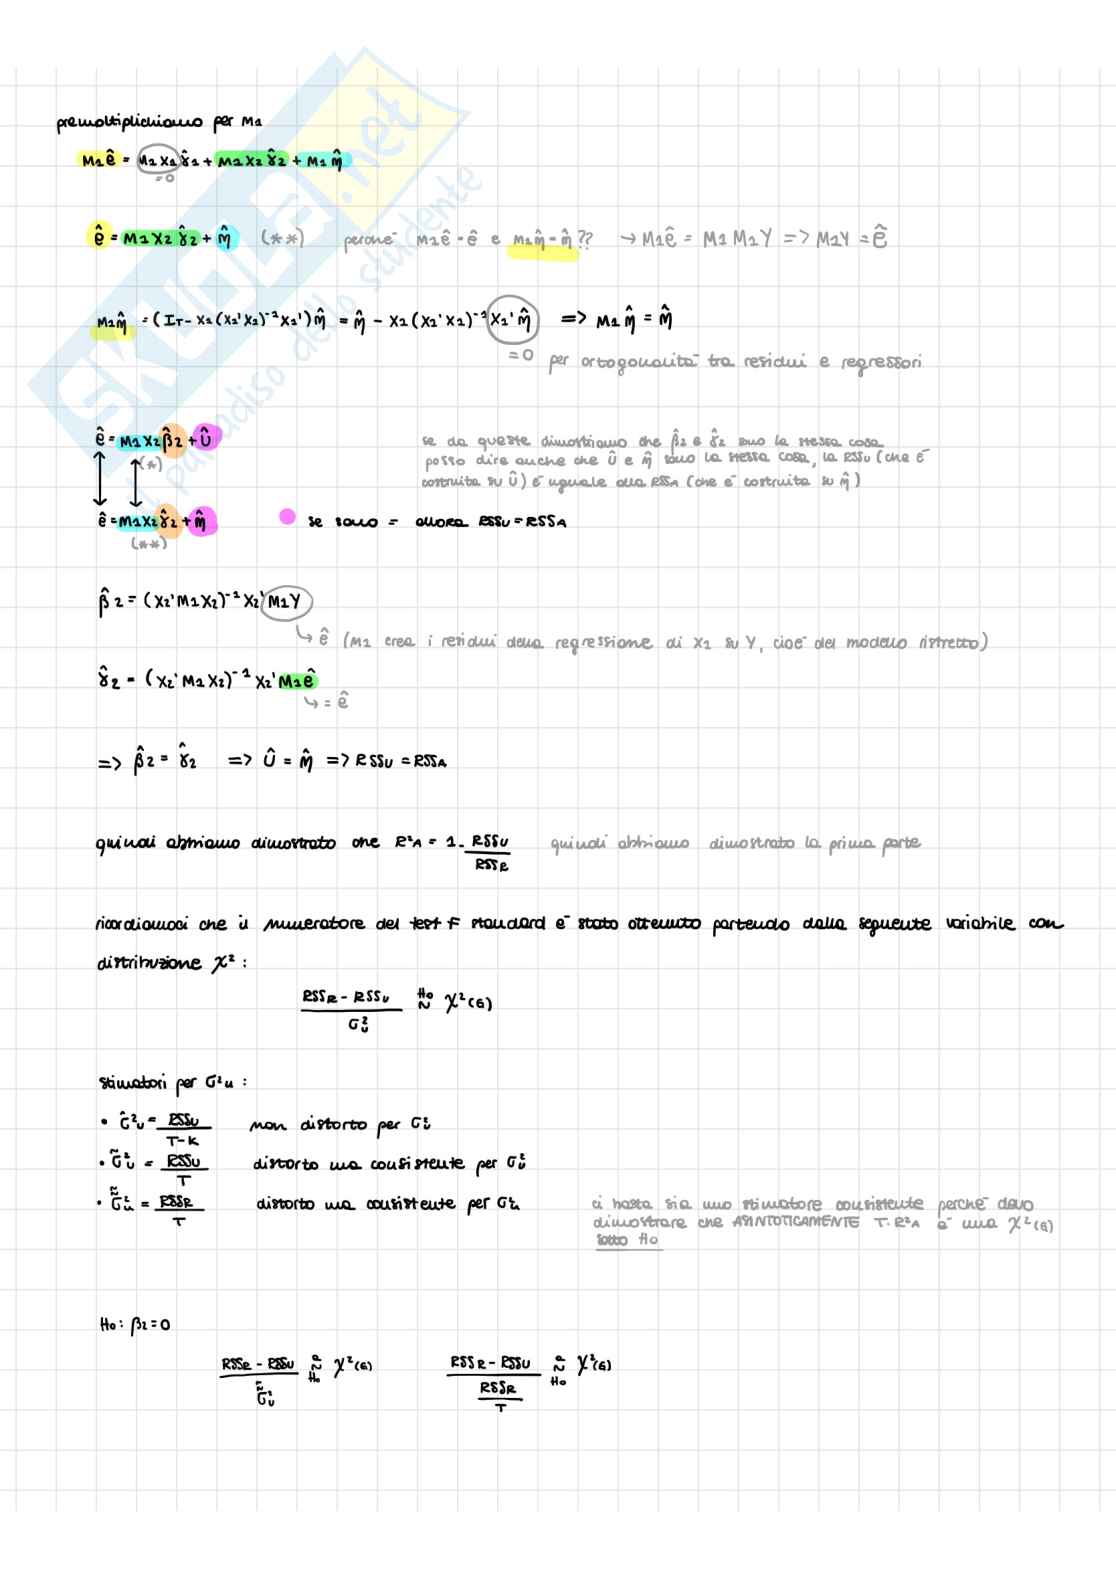 premoltiplichiamo per M1
M1ê = M1X1γ̂1 + M1X2γ̂2 + M1η̂
= 0
ê = M1X2γ̂2 + η̂ (**) perché M1ê = ê e M1η̂ = η̂ ?? → M1ê = M1M1Y => M1Y = ê
M1η̂ = (IT - X1(X1'X1)⁻¹X1')η̂ = η̂ - X1(X1'X1)⁻¹X1'η̂ => M1η̂ = η̂
= 0 per ortogonalità tra residui e regressori
ê = M1X2β̂2 + Û
(*)
se da queste dimostriamo che β̂2 e γ̂2 sono la stessa cosa
posso dire anche che Û e η̂ sono la stessa cosa, la RSSU (che è
costruita su Û) è uguale alla RSSA (che è costruita su η̂)
ê = M1X2γ̂2 + η̂
(**)
se sono = allora RSSU = RSSA
β̂2 = (X2'M1X2)⁻¹X2'M1Y
↳ ê (M1 crea i residui della regressione di X1 su Y, cioè del modello ristretto)
γ̂2 = (X2'M1X2)⁻¹X2'M1ê
↳ = ê
=> β̂2 = γ̂2 => Û = η̂ => RSSU = RSSA
quindi abbiamo dimostrato che R²A = 1 - RSSU / RSSR quindi abbiamo dimostrato la prima parte
ricordiamoci che il numeratore del test F standard è stato ottenuto partendo dalla seguente variabile con
distribuzione χ² :
RSSR - RSSU / σ²U H0 ~ χ²(G)
stimatori per σ²u :
• σ̂²U = RSSU / T-K non distorto per σ²U
• σ̃²U = RSSU / T distorto ma consistente per σ²U
• σ̃̃²u = RSSR / T distorto ma consistente per σ²u
ci basta sia uno stimatore consistente perché devo
dimostrare che ASINTOTICAMENTE T·R²A è una χ²(G)
sotto H0
H0 : β2 = 0
RSSR - RSSU / σ̃̃²U a ~ H0 χ²(G) RSSR - RSSU / RSSR / T a ~ H0 χ²(G)
SKUOLA.net
il paradiso dello studente